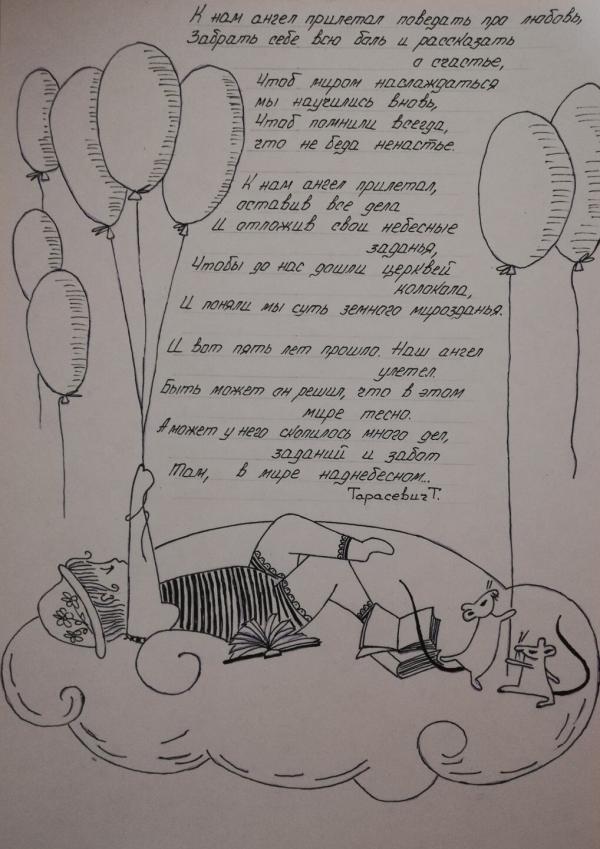 К нам ангел прилетал поведать про любовь,
Забрать себе всю боль и рассказать
о счастье,
Чтоб миром наслаждаться
мы научились вновь,
Чтоб помнили всегда,
что не беда ненастье.
К нам ангел прилетал,
оставив все дела
И отложив свои небесные
заданья,
Чтобы до нас дошли церквей
колокола,
И поняли мы суть земного мирозданья.
И вот пять лет прошло. Наш ангел
улетел.
Быть может он решил, что в этом
мире тесно.
А может у него скопилось много дел,
заданий и забот
Там, в мире наднебесном...
Тарасевич Т.